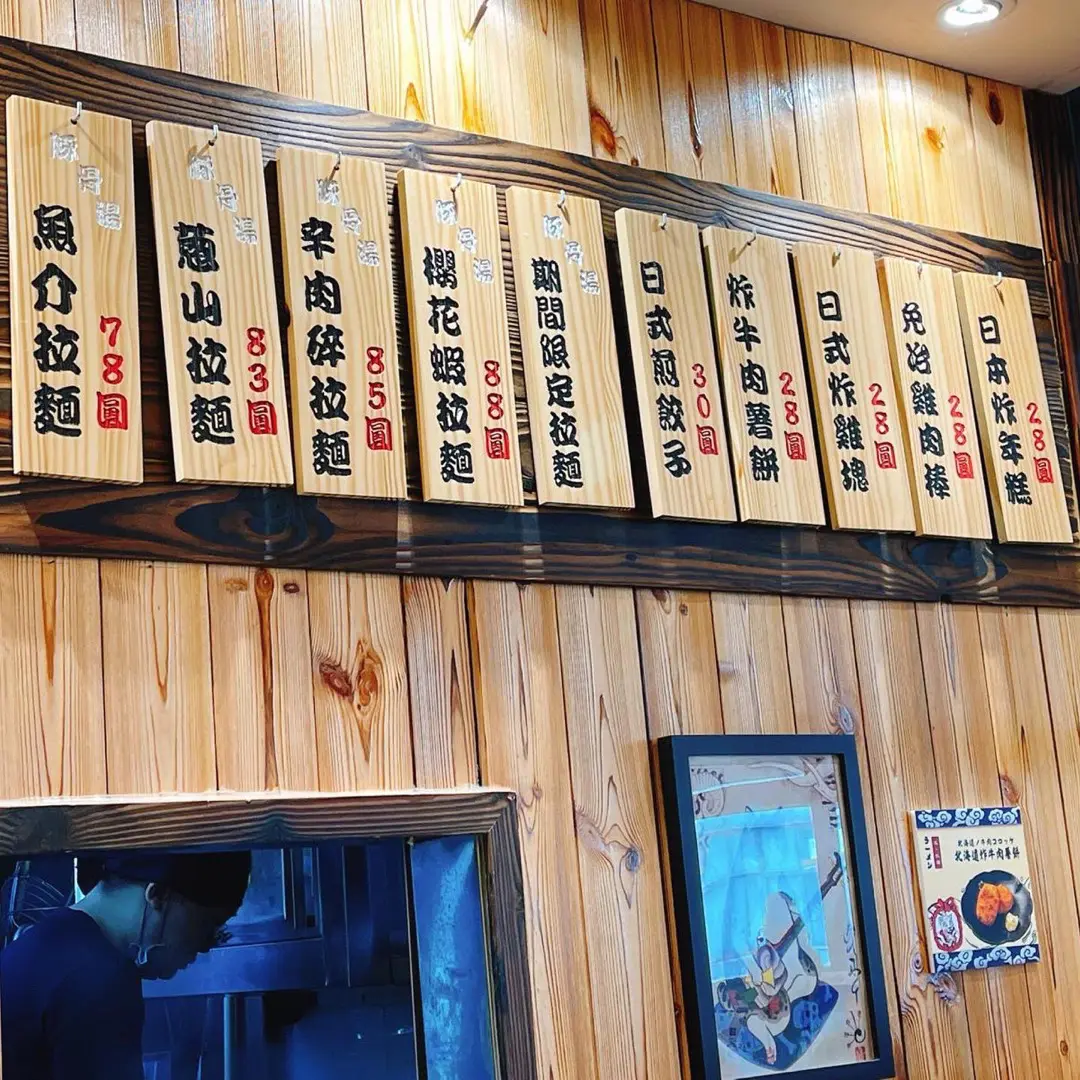 豚骨湯
魚介拉麵
78圓
豚骨湯
蔥山拉麵
83圓
豚骨湯
辛肉碎拉麵
85圓
豚骨湯
櫻花蝦拉麵
88圓
豚骨湯
期間限定拉麵
日式煎餃子
30圓
炸牛肉薯餅
28圓
日式炸雞塊
28圓
免治雞肉棒
28圓
日本炸年糕
28圓
ラーメン
北海道ノ牛肉コロッケ
北海道炸牛肉薯餅